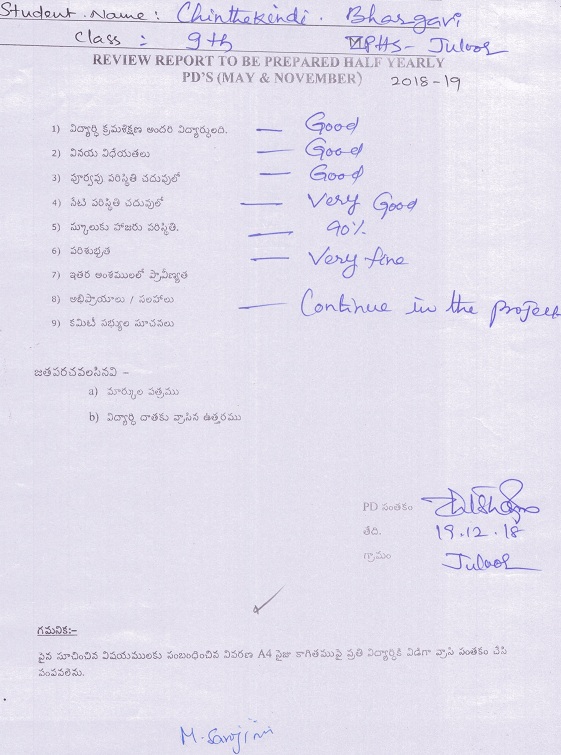 Student Name : Chinthekindi. Bhargavi
Class : 9th ZPHS- Juloor
REVIEW REPORT TO BE PREPARED HALF YEARLY
PD'S (MAY & NOVEMBER) 2018-19
1) విద్యార్థి క్రమశిక్షణ అందరి విద్యార్థులది. — Good
2) వినయ విధేయతలు — Good
3) పూర్వపు పరిస్థితి చదువులో — Good
4) నేటి పరిస్థితి చదువులో — Very Good
5) స్కూలుకు హాజరు పరిస్థితి. — 90%
6) పరిశుభ్రత — Very fine
7) ఇతర అంశములలో ప్రావీణ్యత
8) అభిప్రాయాలు / సలహాలు — Continue in the project
9) కమిటీ సభ్యుల సూచనలు
జతపరచవలసినవి –
a) మార్కుల పత్రము
b) విద్యార్థి దాతకు వ్రాసిన ఉత్తరము
PD సంతకం
తేది. 19.12.18
గ్రామం Juloor
గమనిక:-
పైన సూచించిన విషయములకు సంబంధించిన వివరణ A4 సైజు కాగితముపై ప్రతి విద్యార్థికి విడిగా వ్రాసి సంతకం చేసి
పంపవలెను.
M. Sarojini